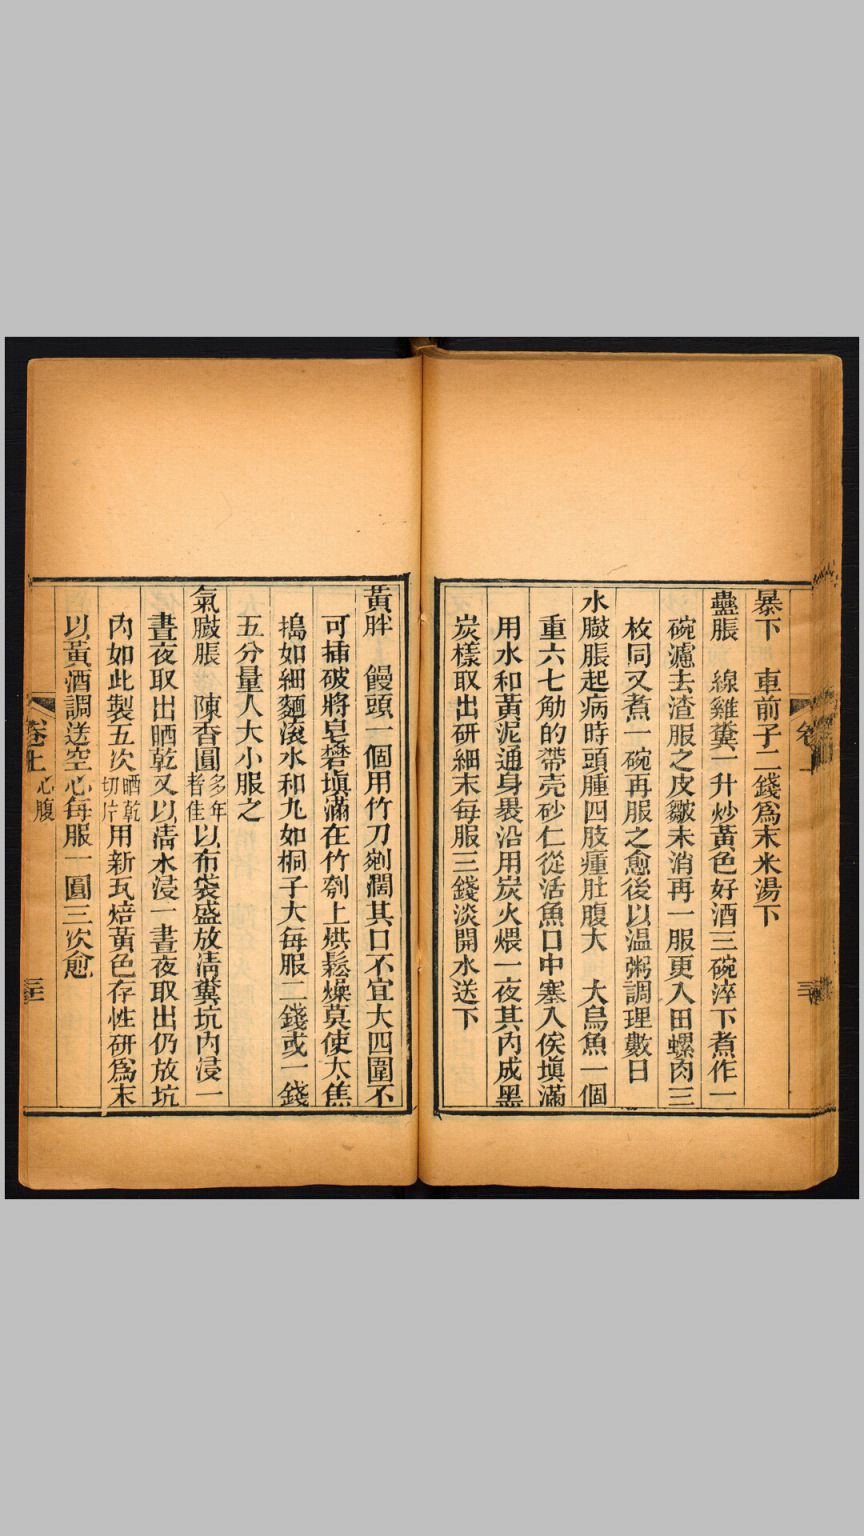 暴下　車前子二錢為末米湯下
蠱脹　線雞糞一升炒黃色好酒三碗淬下煮作一
碗濾去渣服之皮皺未消再一服更入田螺肉三
枚同又煮一碗再服之愈後以温粥調理數日
水臌脹起病時頭腫四肢瘇肚腹大　大烏魚一個
重六七觔的帶壳砂仁從活魚口中塞入俟塡滿
用水和黃泥通身裹沿用炭火煨一夜其內成墨
炭樣取出研細末每服三錢淡開水送下
黃胖　饅頭一個用竹刀剜濶其口不宜大四圍不
可插破將皂礬塡滿在竹刳上烘鬆燥莫使太焦
搗如細麵滾水和丸如桐子大每服二錢或一錢
五分量人大小服之
氣臌脹　陳香圓多年者佳以布袋盛放淸糞坑內浸一
晝夜取出晒乾又以淸水浸一晝夜取出仍放坑
內如此製五次晒乾切片用新瓦焙黃色存性研為末
以黃酒調送空心每服一圓三次愈
卷上 心腹